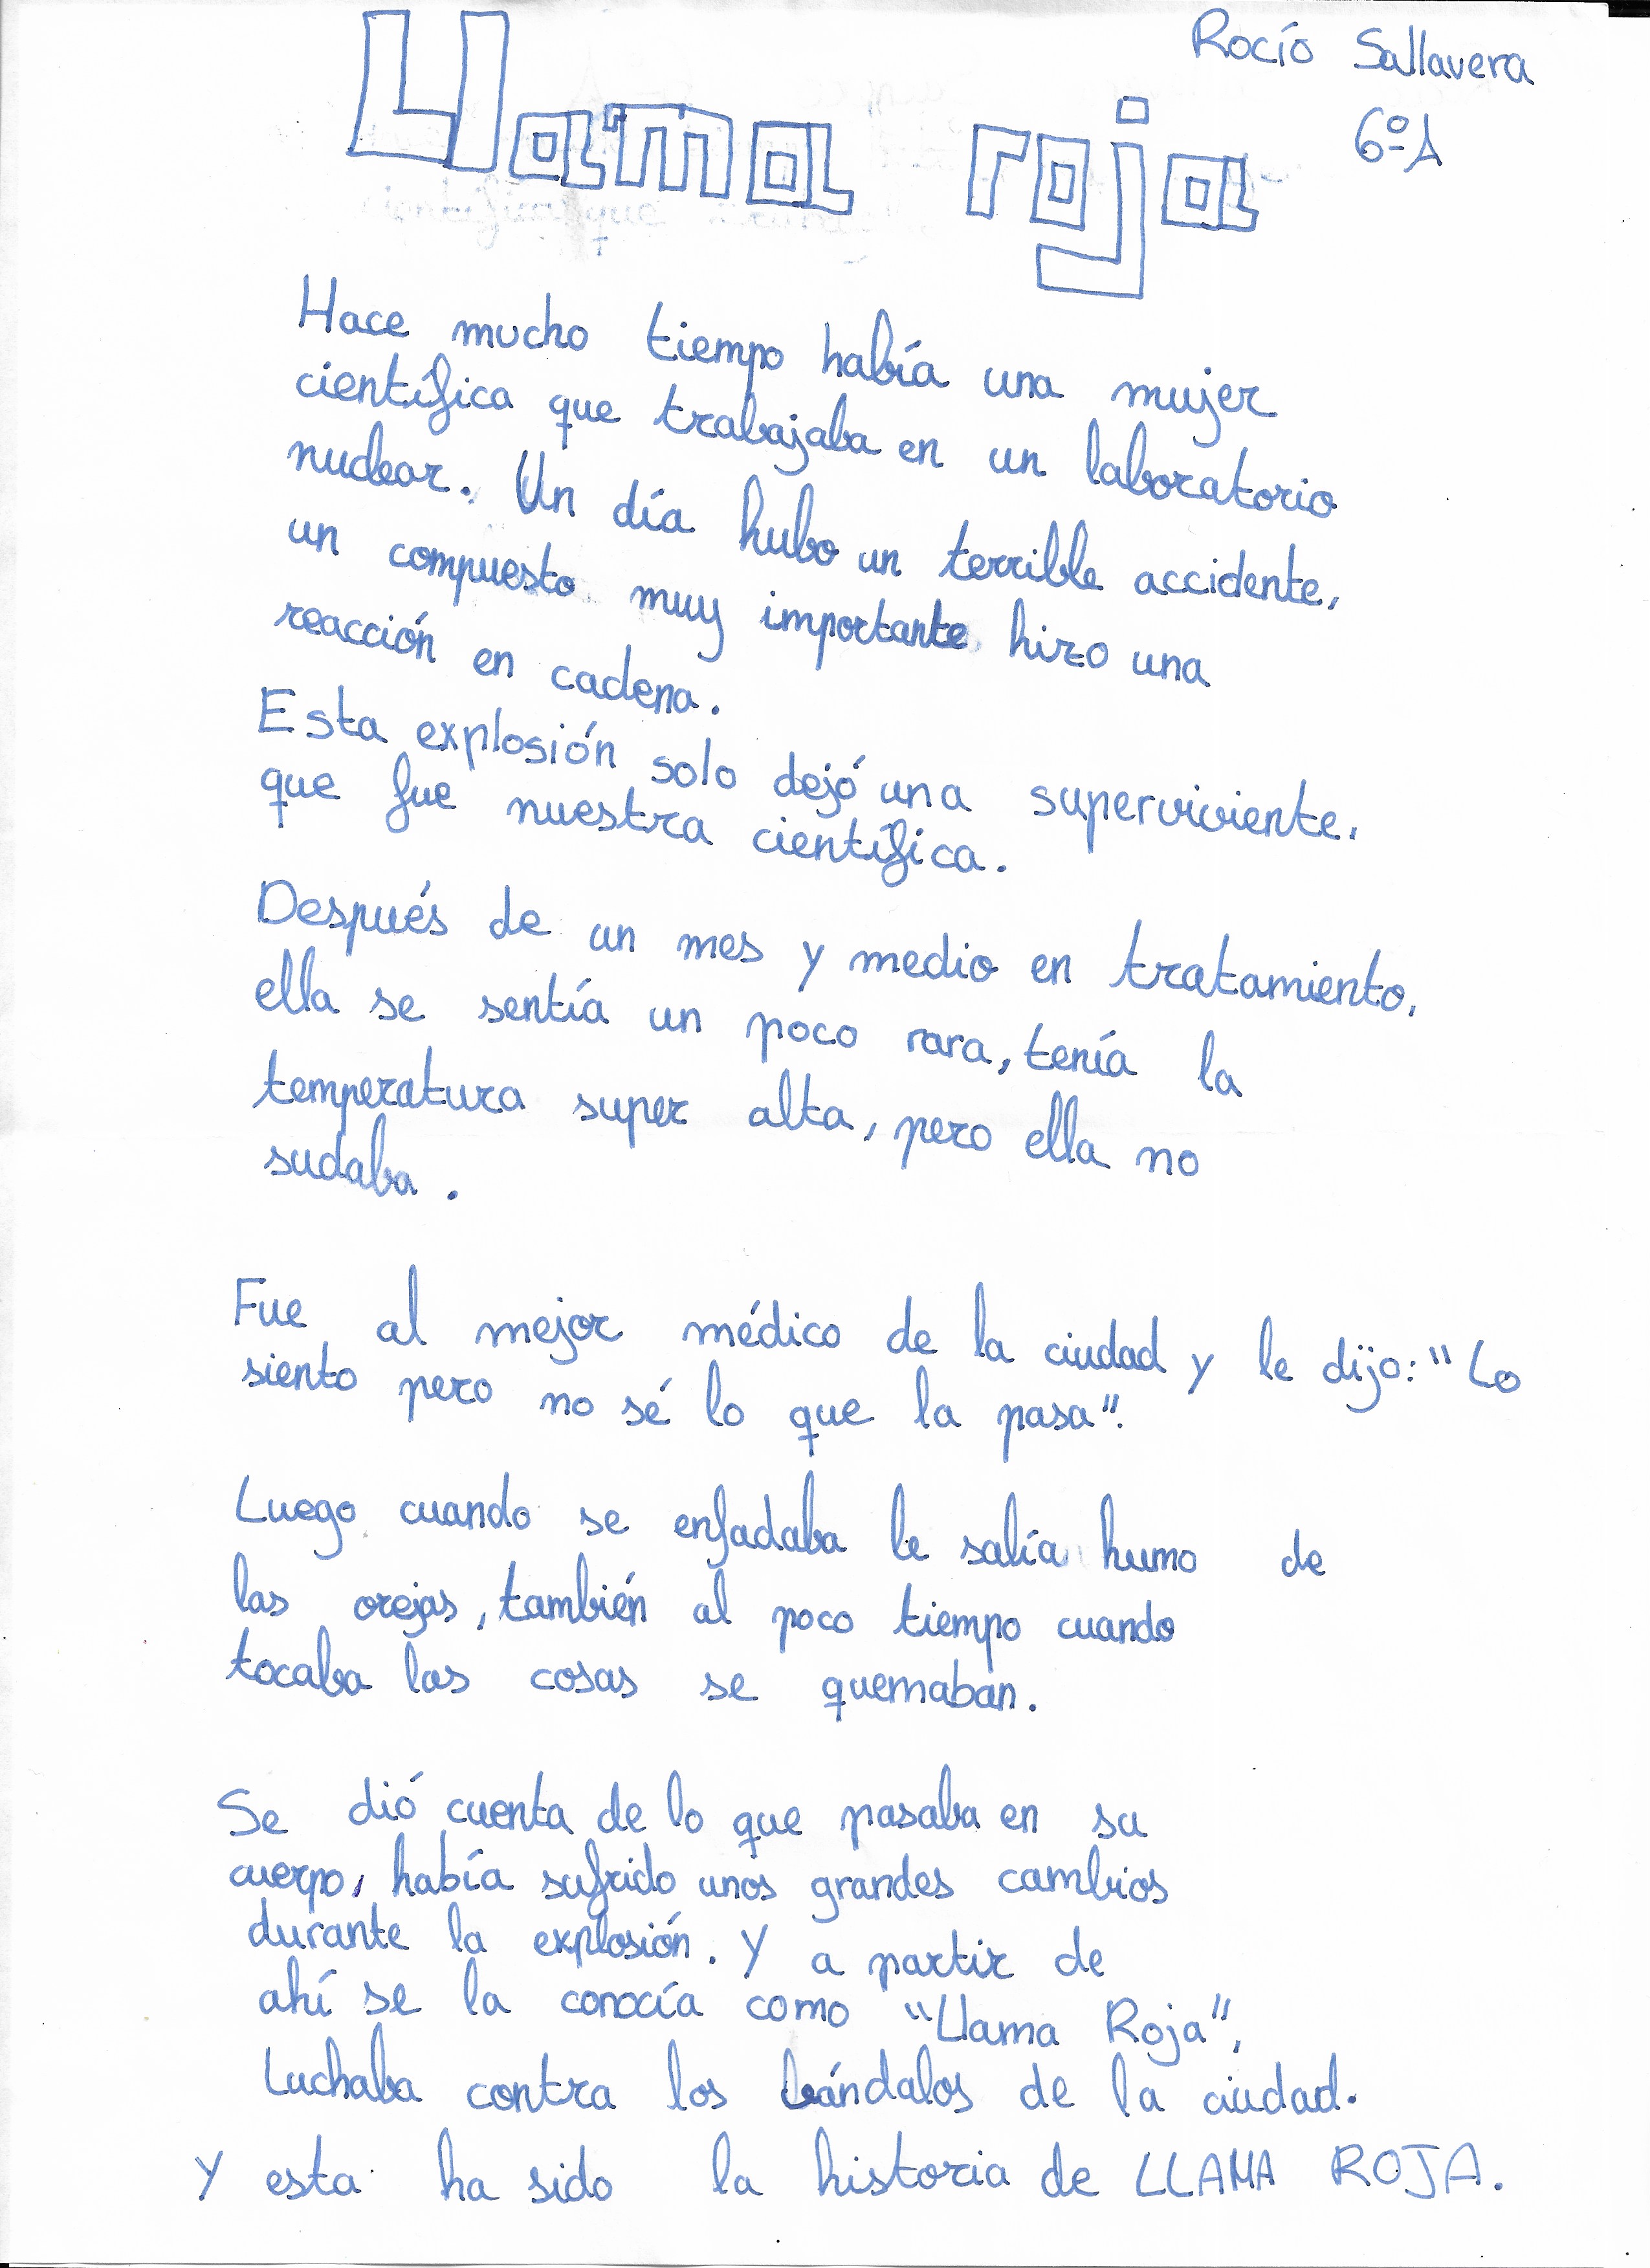 Rocío Sallavera
6º A
Llama roja
Hace mucho tiempo había una mujer
científica que trabajaba en un laboratorio
nuclear. Un día hubo un terrible accidente,
un compuesto muy importante hizo una
reacción en cadena.
Esta explosión solo dejó una superviviente,
que fue nuestra científica.
Después de un mes y medio en tratamiento,
ella se sentía un poco rara, tenía la
temperatura super alta, pero ella no
sudaba.
Fue al mejor médico de la ciudad y le dijo: "Lo
siento pero no sé lo que la pasa".
Luego cuando se enfadaba le salía humo de
las orejas, también al poco tiempo cuando
tocaba las cosas se quemaban.
Se dió cuenta de lo que pasaba en su
cuerpo, había sufrido unos grandes cambios
durante la explosión. Y a partir de
ahí se la conocía como "Llama Roja",
Luchaba contra los bándalos de la ciudad.
Y esta ha sido la historia de LLAMA ROJA.